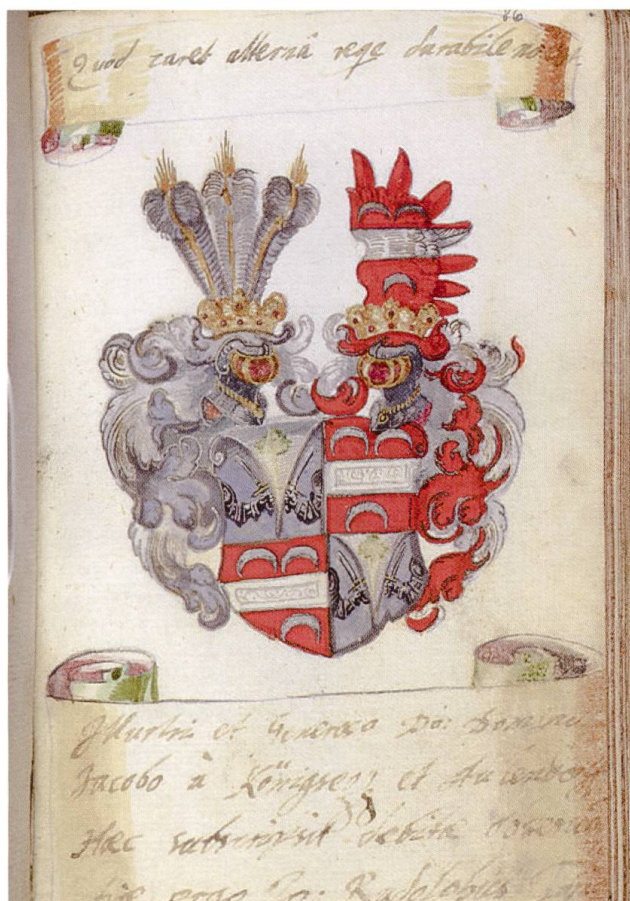 86
Quod caret alternâ reqe durabile non est
Illustri et Generoso Do: Domino
Jacobo à Königsegg et Aulendorf
Hæc subscripsit debitæ
ergo Do: Rudolphus